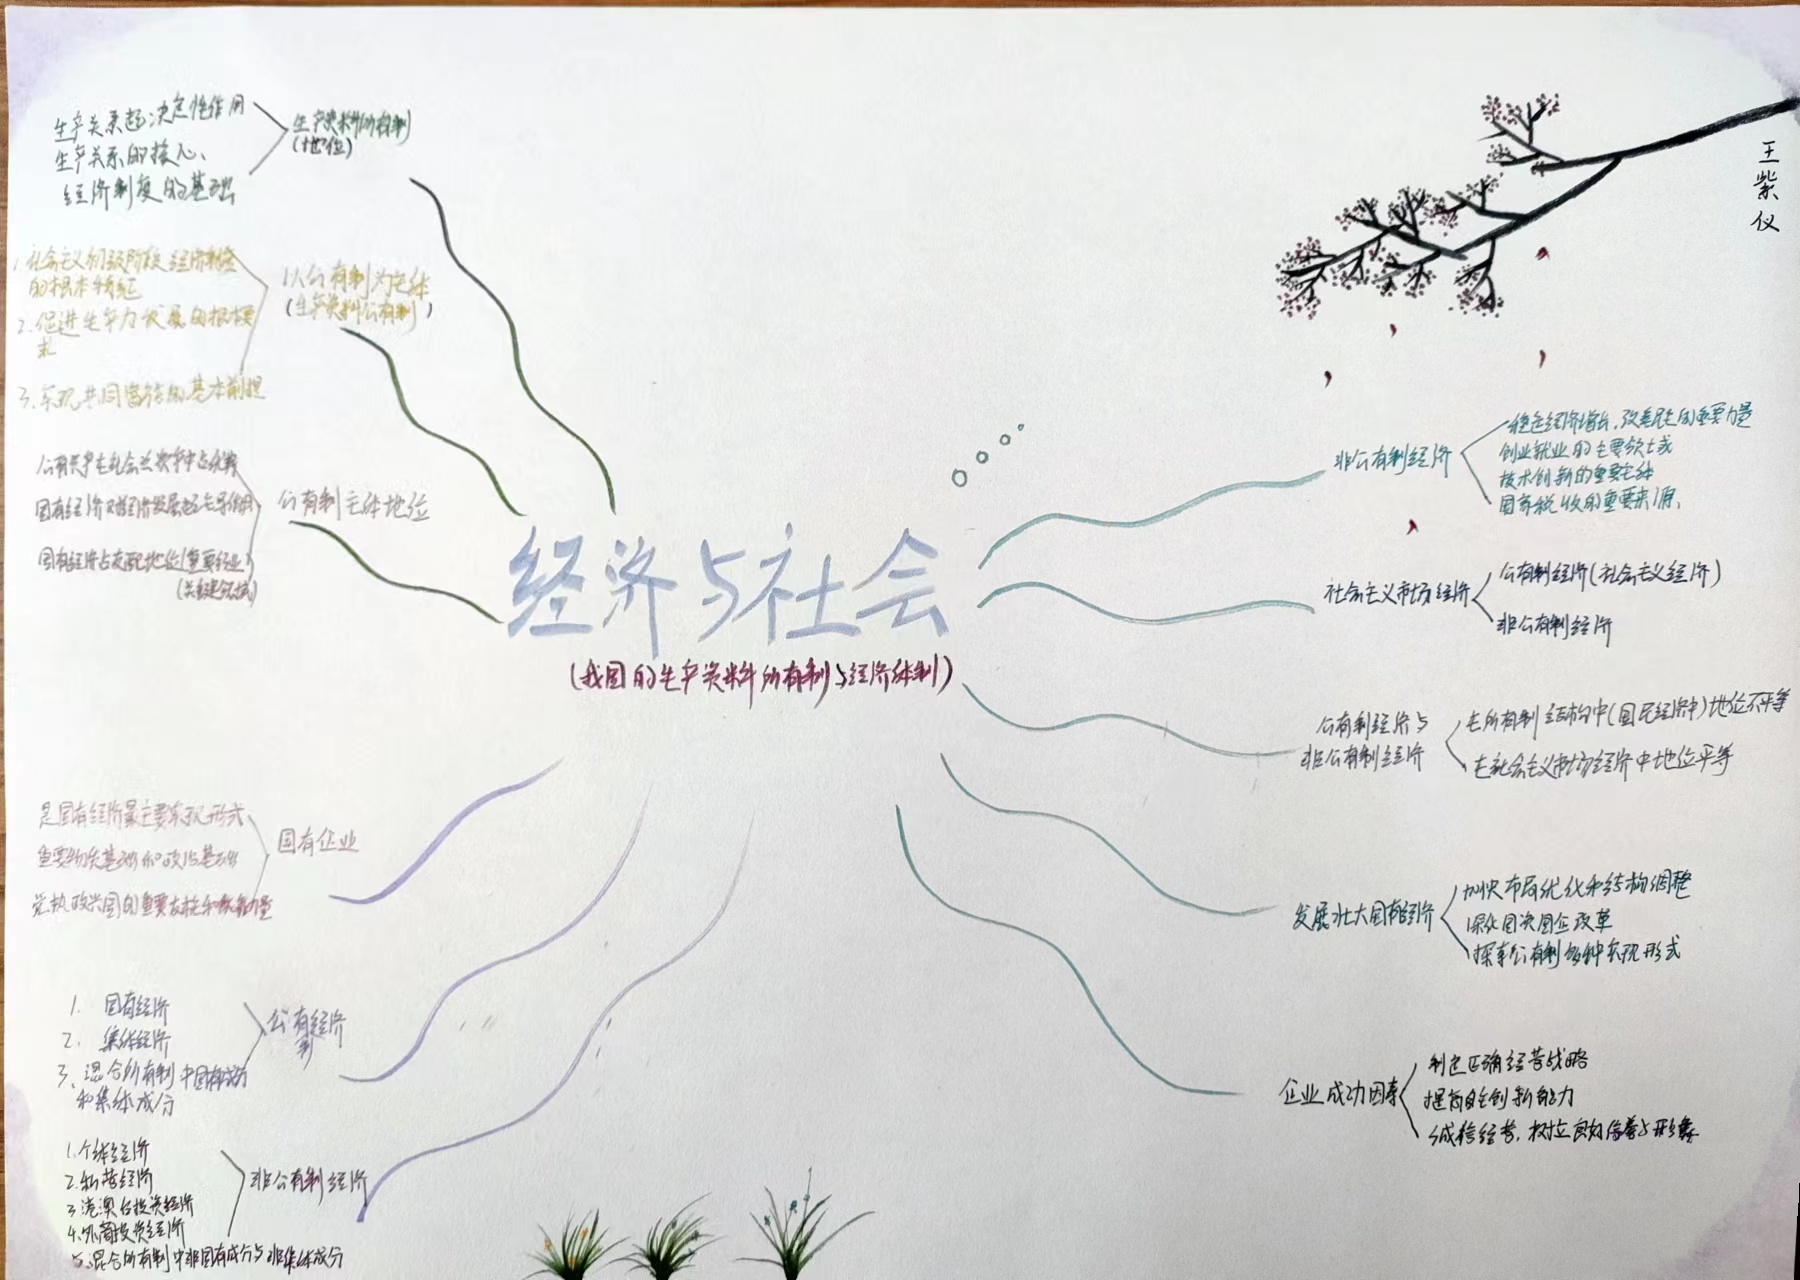 经济与社会
(我国的生产资料所有制与经济体制)
王紫仪
生产资料所有制
(地位)
生产关系起决定性作用
生产关系的核心、
经济制度的基础
以公有制为主体
(生产资料公有制)
1.社会主义初级阶段经济制度
的根本特征
2.促进生产力发展的根本要
求
3.实现共同富裕的基本前提
公有制主体地位
公有资产在社会总资产中占优势
国有经济对经济发展起主导作用
国有经济占支配地位(重要行业)
(关键领域)
国有企业
是国有经济最主要实现形式
重要物质基础和政治基础
党执政兴国的重要支柱和依靠力量
公有经济
制
1. 国有经济
2. 集体经济
3. 混合所有制中国有成分
和集体成分
非公有制经济
1.个体经济
2.私营经济
3.港澳台投资经济
4.外商投资经济
5.混合所有制中非国有成分与非集体成分
非公有制经济
稳定经济增长,改善民生的重要力量
创业就业的主要领域
技术创新的重要主体
国家税收的重要来源,
社会主义市场经济
公有制经济(社会主义经济)
非公有制经济
公有制经济与
非公有制经济
在所有制结构中(国民经济中)地位不平等
在社会主义市场经济中地位平等
发展壮大国有经济
加快布局优化和结构调整
深化国决国企改革
探索公有制多种实现形式
企业成功因素
制定正确经营战略
提高自主创新能力
诚信经营,树立良好信誉与形象